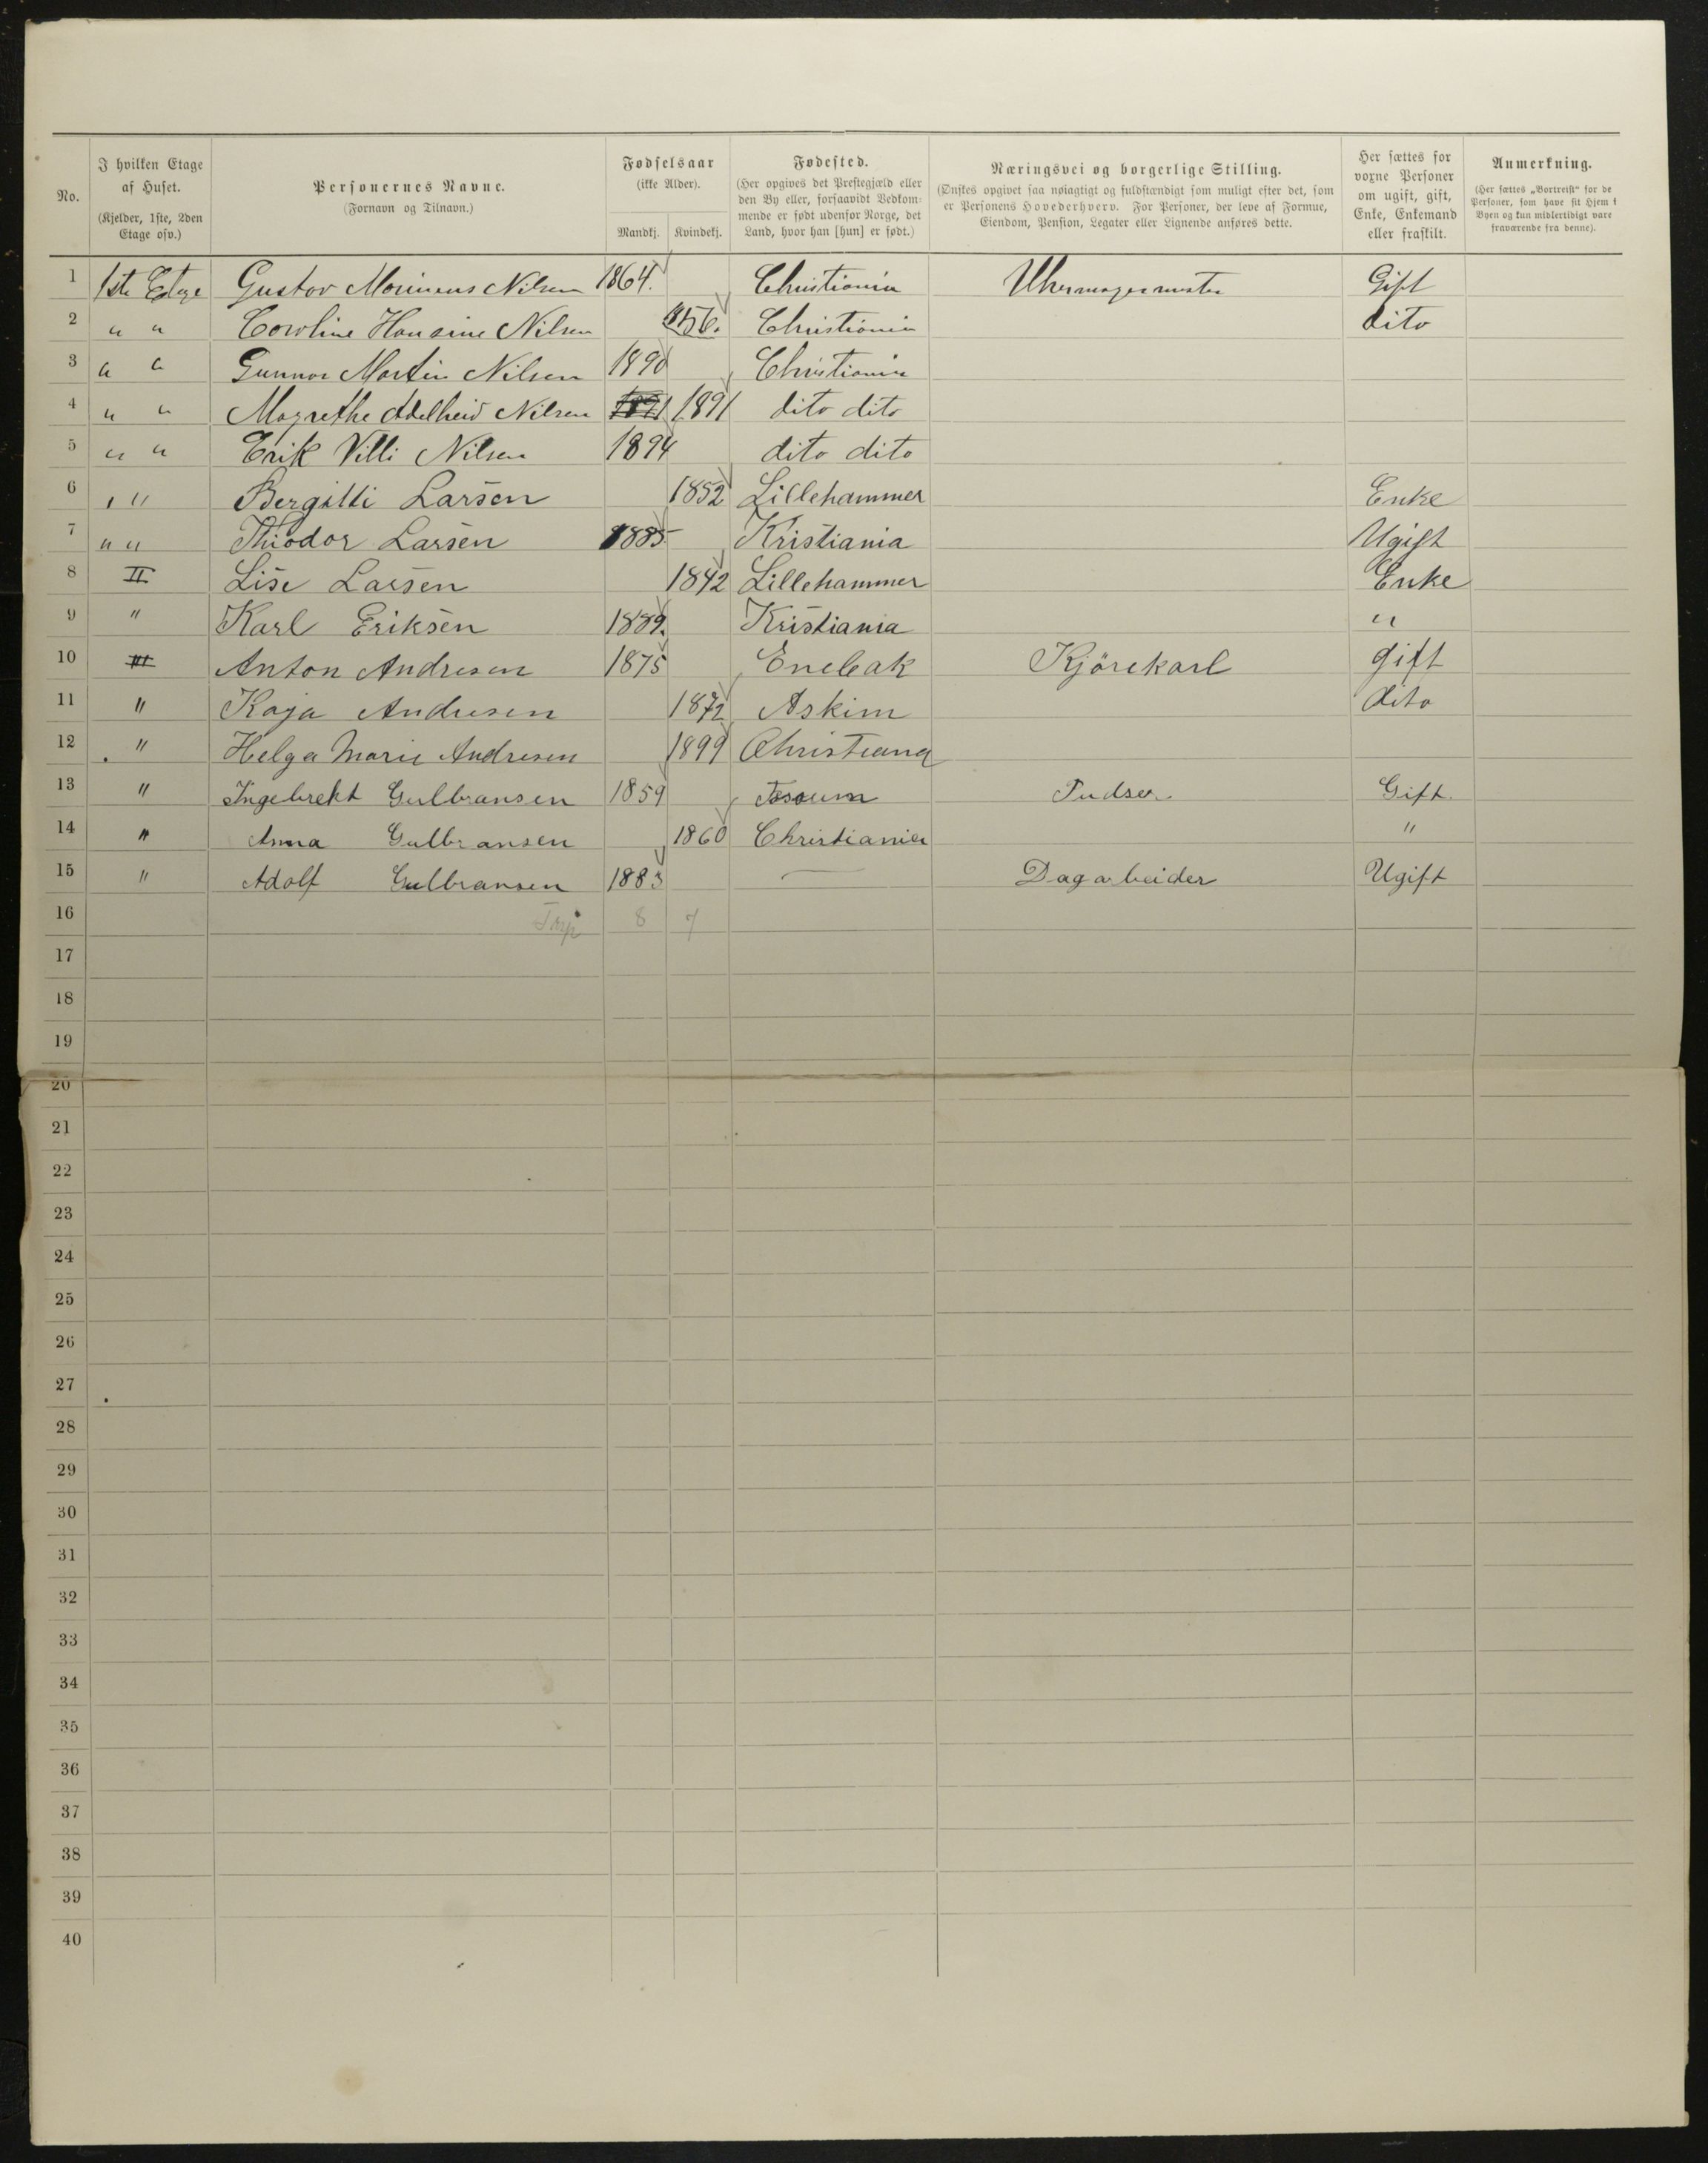 No.
I hvilken Etage af Huset.
(Kjelder, 1ste, 2den Etage osv.)
Personernes Navne.
(Fornavn og Tilnavn.)
Fødselsaar
(ikke Alder).
Mandkj. Kvindekj.
Fødested.
(Her opgives det Prestegjæld eller
den By eller, forsaavidt Vedkom-
mende er født udenfor Norge, det
Land, hvor han [hun] er født.)
Næringsvei og borgerlige Stilling.
(Ønskes opgivet saa nøiagtigt og fuldstændigt som muligt efter det, som
er Personens Hovederhverv. For Personer, der leve af Formue,
Eiendom, Pension, Legater eller Lignende anføres dette.
Her sættes for
voxne Personer
om ugift, gift,
Enke, Enkemand
eller fraskilt.
Anmerkning.
(Her sættes „Bortreist“ for de
Personer, som have sit Hjem i
Byen og kun midlertidigt vare
fraværende fra denne).
1 1ste Etage Gustav Nilsen 1864. Christiania Uhrmagermester Gift
2 " " Hansine Nilsen Christiania dito
3 " " Gunnar Martin Nilsen 1890 Christiania
4 " " Magrethe Adelheid Nilsen 1891 1891 dito dito
5 " " Erik Villi Nilsen 1894 dito dito
6 " " Bergitti Larsen 1852 Lillehammer Enke
7 " " Thiodor Larsen 1885 Kristiania Ugift
8 II Lise Larsen 1842 Lillehammer Enke
9 " Karl Eriksen Kristiania "
10 III Anton Andresen 1875 Enebak Kjörekarl gift
11 " Kaja Andresen 1872 Askim dito
12 " Helga Marie Andresen 1899 Christiana
13 " Ingebrekt Gulbransen 1859 Pudser Gift.
14 " Anna Gulbransen 1860 Christiania "
15 " Adolf Gulbransen 1883 — Dagarbeider Ugift
16 8 7
17
18
19
20
21
22
23
24
25
26
27
28
29
30
31
32
33
34
35
36
37
38
39
40